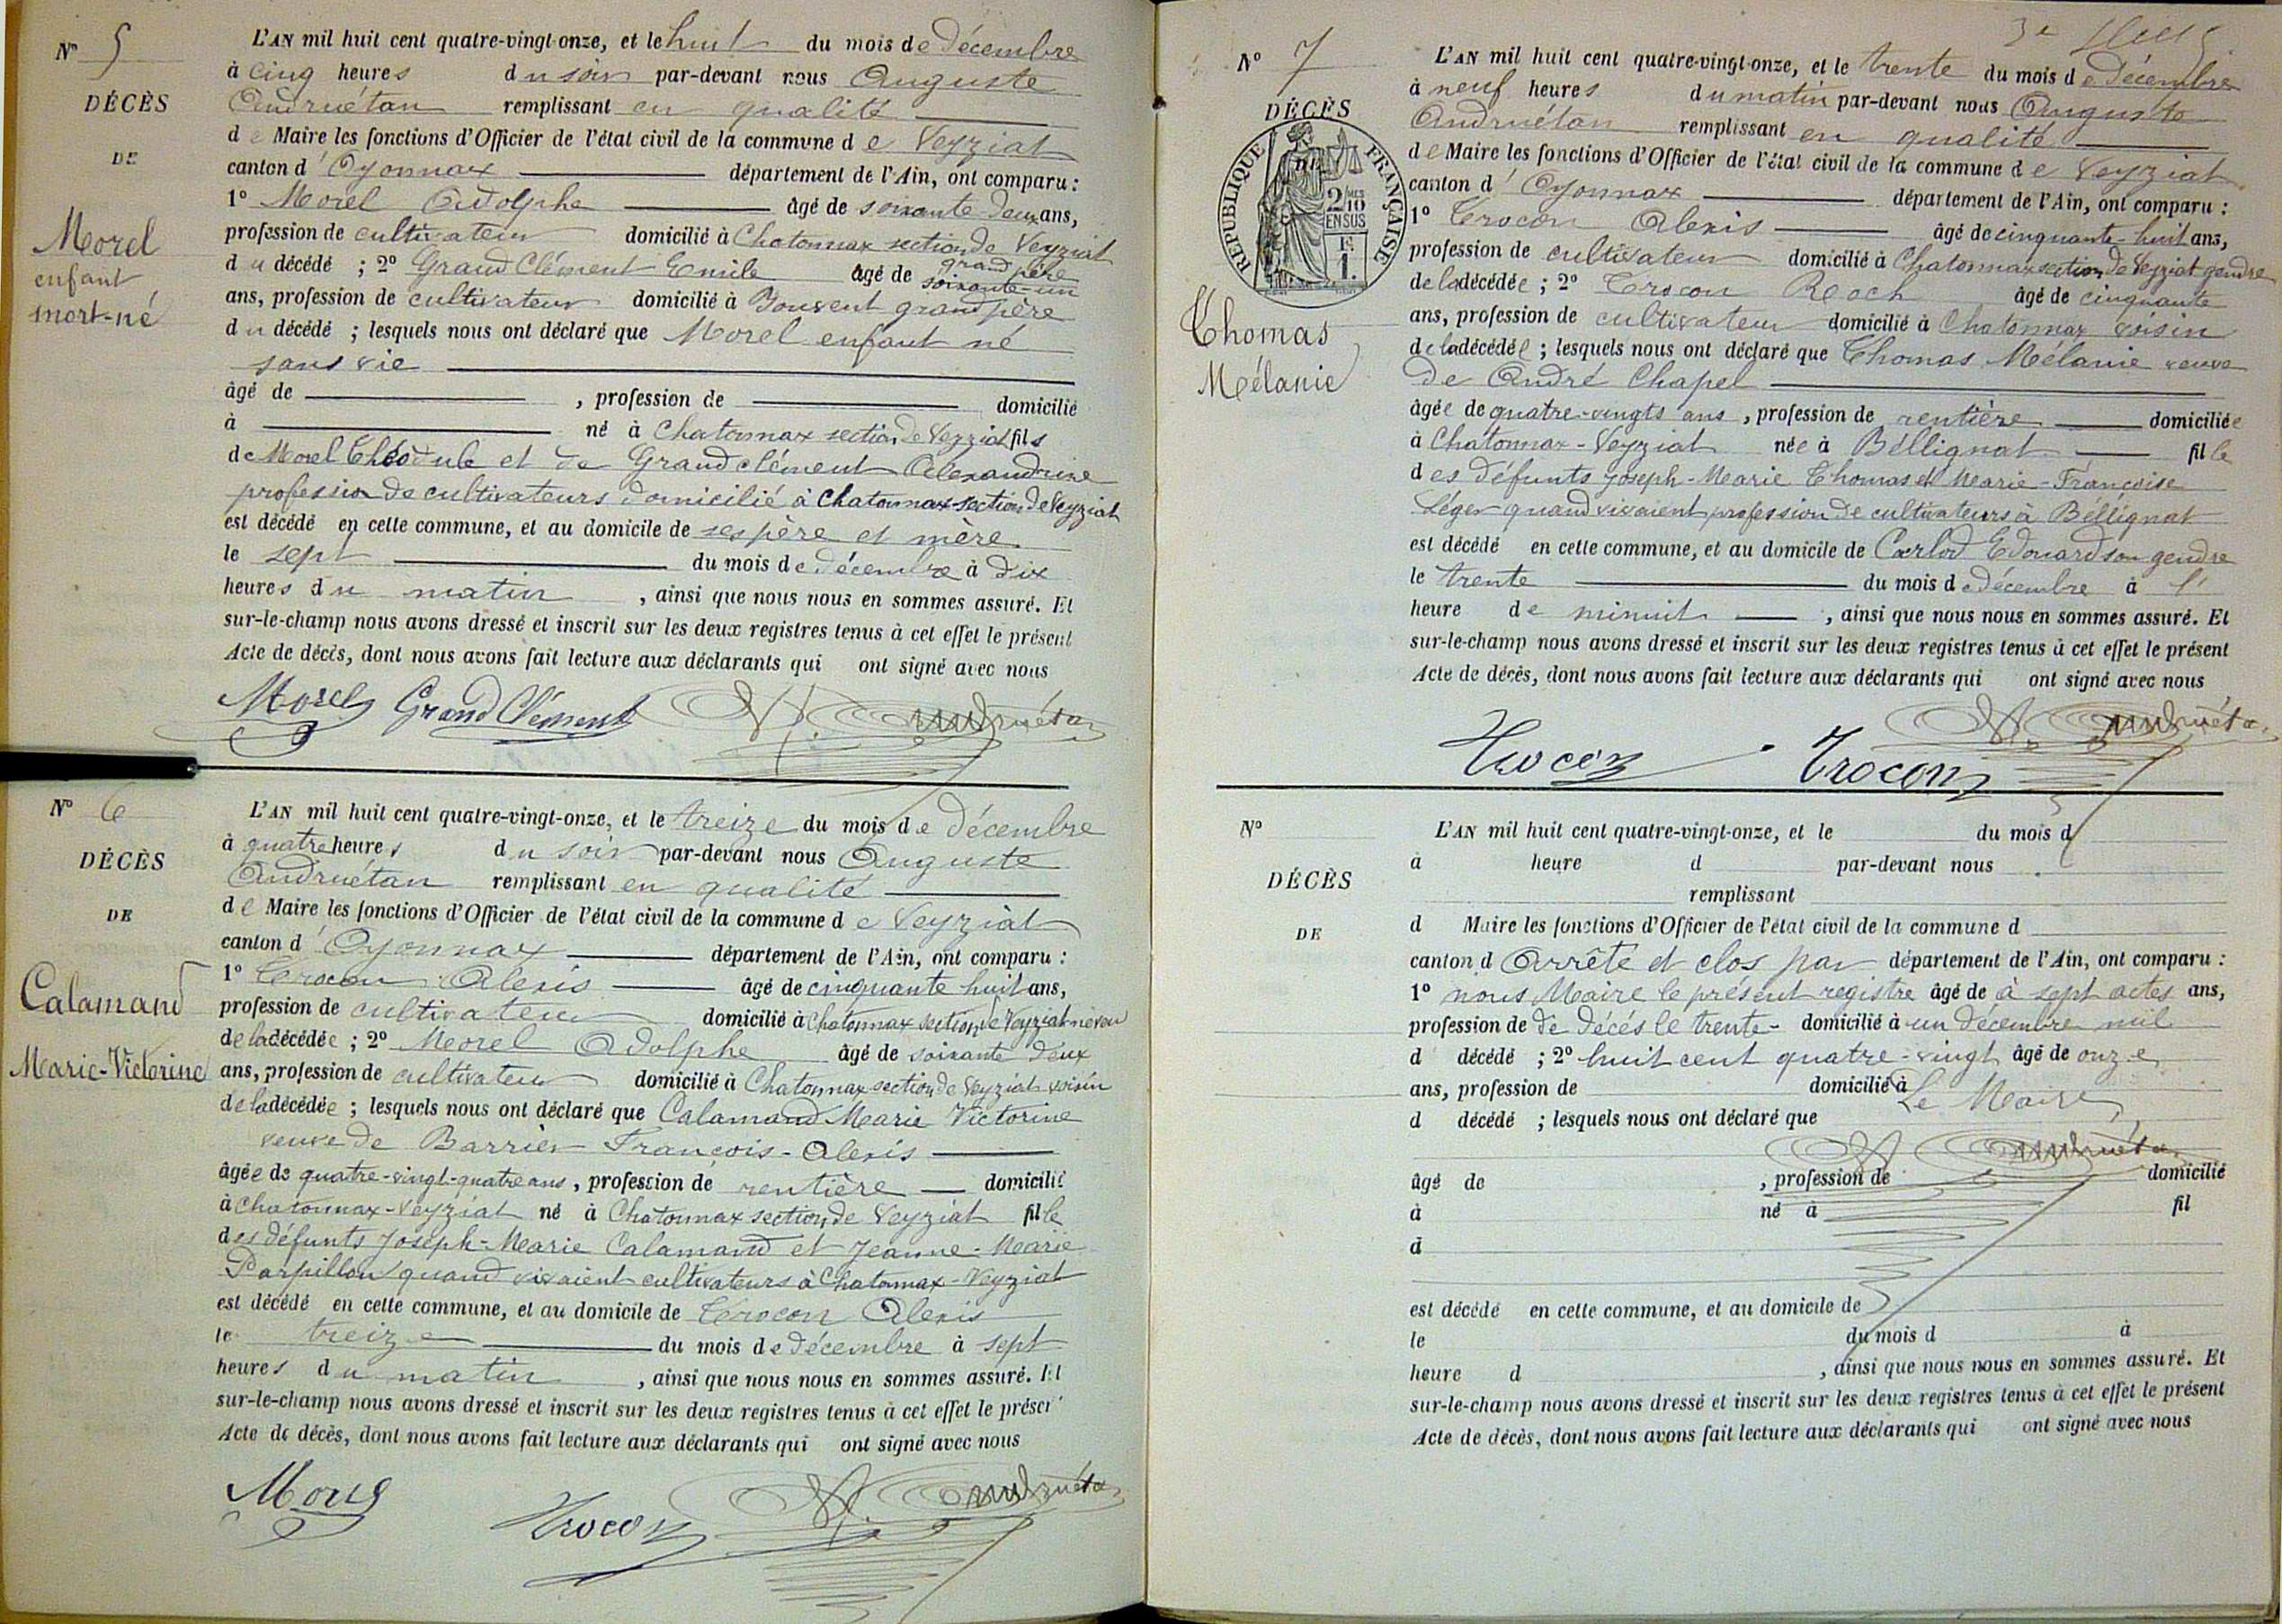 N° 5
DÉCÈS
DE
Morel
enfant
mort-né
L'AN mil huit cent quatre-vingt-onze, et le huit du mois de Décembre
à cinq heures du soir par-devant nous Auguste
Andruétan remplissant en qualité
de Maire les fonctions d'Officier de l'état civil de la commune de Veyziat
canton d'Oyonnax département de l'Ain, ont comparu :
1° Morel Adolphe âgé de soixante-deux ans,
profession de cultivateur domicilié à Chatonnax section de Veyziat
grand père
du décédé ; 2° Grand Clément Emile âgé de soixante-un
ans, profession de cultivateur domicilié à Bouvent grand père
du décédé ; lesquels nous ont déclaré que Morel enfant né
sans vie
âgé de , profession de domicilié
à né à Chatonnax section de Veyziat fils
de Morel Théodule et de Grandclément Alexandrine
profession de cultivateurs domicilié à Chatonnax-section de Veyziat
est décédé en cette commune, et au domicile de ses père et mère
le sept du mois de décembre à dix
heures du matin , ainsi que nous nous en sommes assuré. Et
sur-le-champ nous avons dressé et inscrit sur les deux registres tenus à cet effet le présent
Acte de décès, dont nous avons fait lecture aux déclarants qui ont signé avec nous
Morel Grand Clément A. Andruétan
N° 6
DÉCÈS
DE
Calamand
Marie-Victorine
L'AN mil huit cent quatre-vingt-onze, et le treize du mois de décembre
à quatre heures du soir par-devant nous Auguste
Andruétan remplissant en qualité
de Maire les fonctions d'Officier de l'état civil de la commune de Veyziat
canton d'Oyonnax département de l'Ain, ont comparu :
1° Trocon Alexis âgé de cinquante huit ans,
profession de cultivateur domicilié à Chatonnax section de Veyziat neveu
de la décédée ; 2° Morel Adolphe âgé de soixante deux
ans, profession de cultivateur domicilié à Chatonnax section de Veyziat voisin
de la décédée ; lesquels nous ont déclaré que Calamand Marie Victorine
veuve de Barrier François-Alexis
âgée de quatre-vingt-quatre ans, profession de rentière domicilié
à Chatonnax-Veyziat né à Chatonnax section de Veyziat fille
des défunts Joseph-Marie Calamand et Jeanne-Marie
Parpillon quand vivaient cultivateurs à Chatonnax-Veyziat
est décédé en cette commune, et au domicile de Trocon Alexis
le treize du mois de décembre à sept
heures du matin , ainsi que nous nous en sommes assuré. Et
sur-le-champ nous avons dressé et inscrit sur les deux registres tenus à cet effet le présent
Acte de décès, dont nous avons fait lecture aux déclarants qui ont signé avec nous
Morel Trocon A. Andruétan
3e
N° 7
DÉCÈS
RÉPUBLIQUE FRANÇAISE
2/10 EN SUS
Thomas
Mélanie
L'AN mil huit cent quatre-vingt-onze, et le trente du mois de Décembre
à neuf heures du matin par-devant nous Auguste
Andruétan remplissant en qualité
de Maire les fonctions d'Officier de l'état civil de la commune de Veyziat
canton d'Oyonnax département de l'Ain, ont comparu :
1° Trocon Alexis âgé de cinquante-huit ans,
profession de cultivateur domicilié à Chatonnax section de Veyziat gendre
de la décédée ; 2° Trocon Roch âgé de cinquante
ans, profession de cultivateur domicilié à Chatonnax voisin
de la décédée ; lesquels nous ont déclaré que Thomas Mélanie veuve
de André Chapel
âgée de quatre-vingts ans, profession de rentière domiciliée
à Chatonnax-Veyziat née à Bellignat fille
des défunts Joseph-Marie Thomas et Marie-Françoise
Léger quand vivaient profession de cultivateurs à Bellignat
est décédé en cette commune, et au domicile de Carlod Edouard son gendre
le trente du mois de décembre à l'
heure de minuit , ainsi que nous nous en sommes assuré. Et
sur-le-champ nous avons dressé et inscrit sur les deux registres tenus à cet effet le présent
Acte de décès, dont nous avons fait lecture aux déclarants qui ont signé avec nous
Trocon Trocon A. Andruétan
N°
DÉCÈS
DE
L'AN mil huit cent quatre-vingt-onze, et le du mois d
à heure d par-devant nous
remplissant
d Maire les fonctions d'Officier de l'état civil de la commune d
canton d Arrêté et clos par département de l'Ain, ont comparu :
1° nous Maire le présent registre âgé de à sept actes ans,
profession de de décès le trente- domicilié à un décembre mil
d décédé ; 2° huit cent quatre-vingt âgé de onze
ans, profession de domicilié à
Le Maire
d décédé ; lesquels nous ont déclaré que
A. Andruétan
âgé de , profession de domicilié
à né à fil
d
est décédé en cette commune, et au domicile de
le du mois d à
heure d , ainsi que nous nous en sommes assuré. Et
sur-le-champ nous avons dressé et inscrit sur les deux registres tenus à cet effet le présent
Acte de décès, dont nous avons fait lecture aux déclarants qui ont signé avec nous